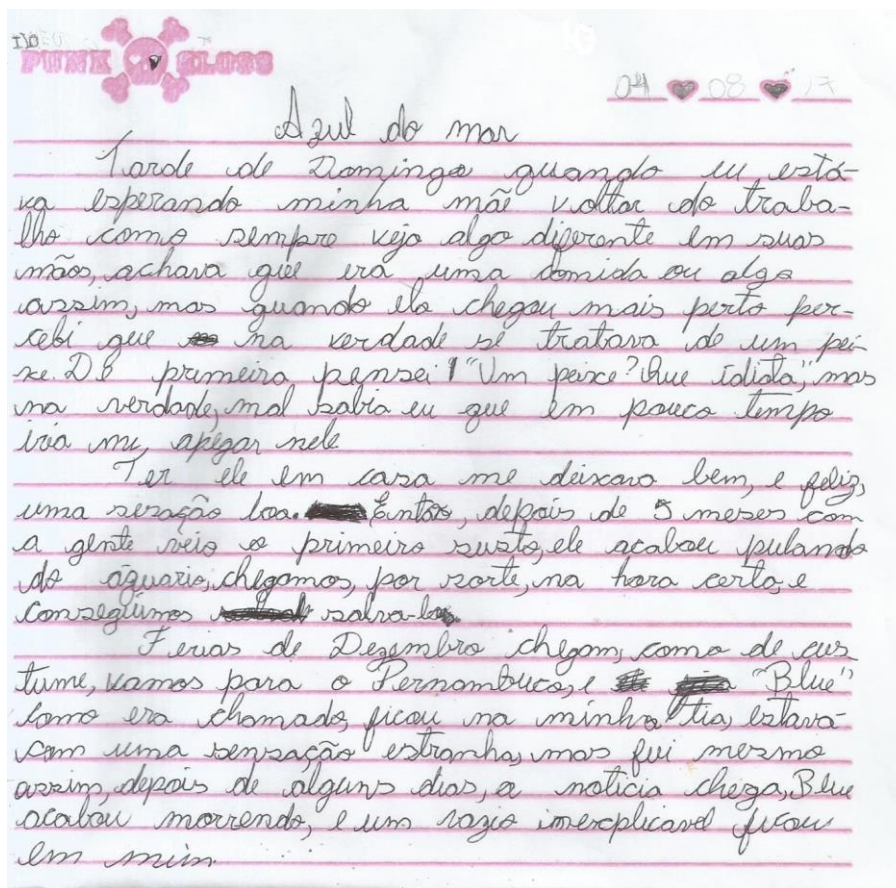 PUNK GLOSS
04 08 17
Azul do mar
Tarde de Domingo quando eu está-
va esperando minha mãe voltar do traba-
lho como sempre vejo algo diferente em suas
mãos, achava que era uma comida ou algo
assim, mas quando ela chegou mais perto per-
cebi que na verdade se tratava de um pei-
xe. De primeira pensei "Um peixe? Que idiota", mas
na verdade, mal sabia eu que em pouco tempo
iria me apegar nele
Ter ele em casa me deixava bem, e feliz,
uma senação boa. Então, depois de 5 meses com
a gente veio o primeiro susto, ele acabou pulando
do aguario, chegamos, por sorte, na hora certa, e
conseguimos salva-lo.
Ferias de Dezembro chegam, como de cus
tume, vamos para o Pernambuco, e "Blue"
como era chamado, ficou na minha tia, estava
com uma sensação estranha, mas fui mesmo
assim, depois de alguns dias, a noticia chega, Blue
acabou morrendo, e um vazio inexplicavel ficou
em mim